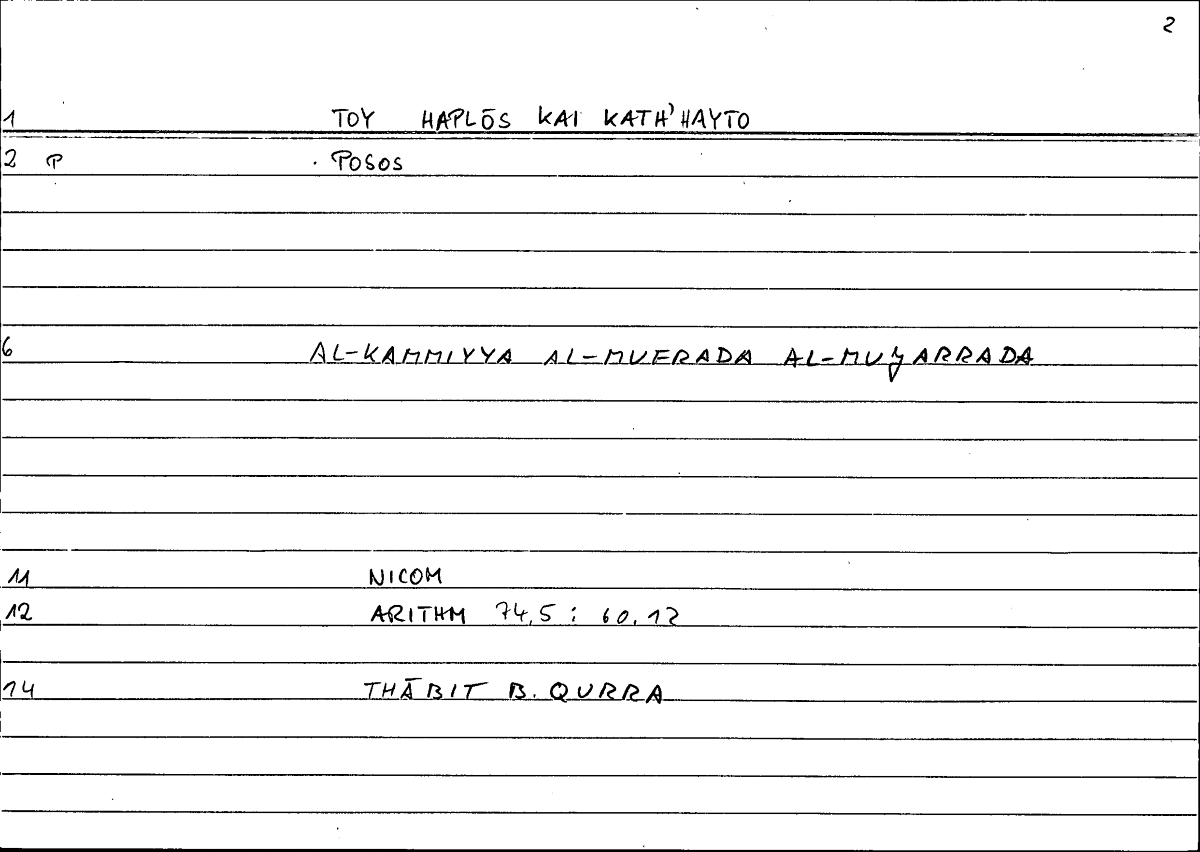 2
1 TOY HAPLŌS KAI KATH'HAYTO
2 P . POSOS
6 AL-KAMMIYYA AL-MUFRADA AL-MUǧARRADA
11 NICOM
12 ARITHM 74,5 : 60.12
14 THĀBIT B. QURRA